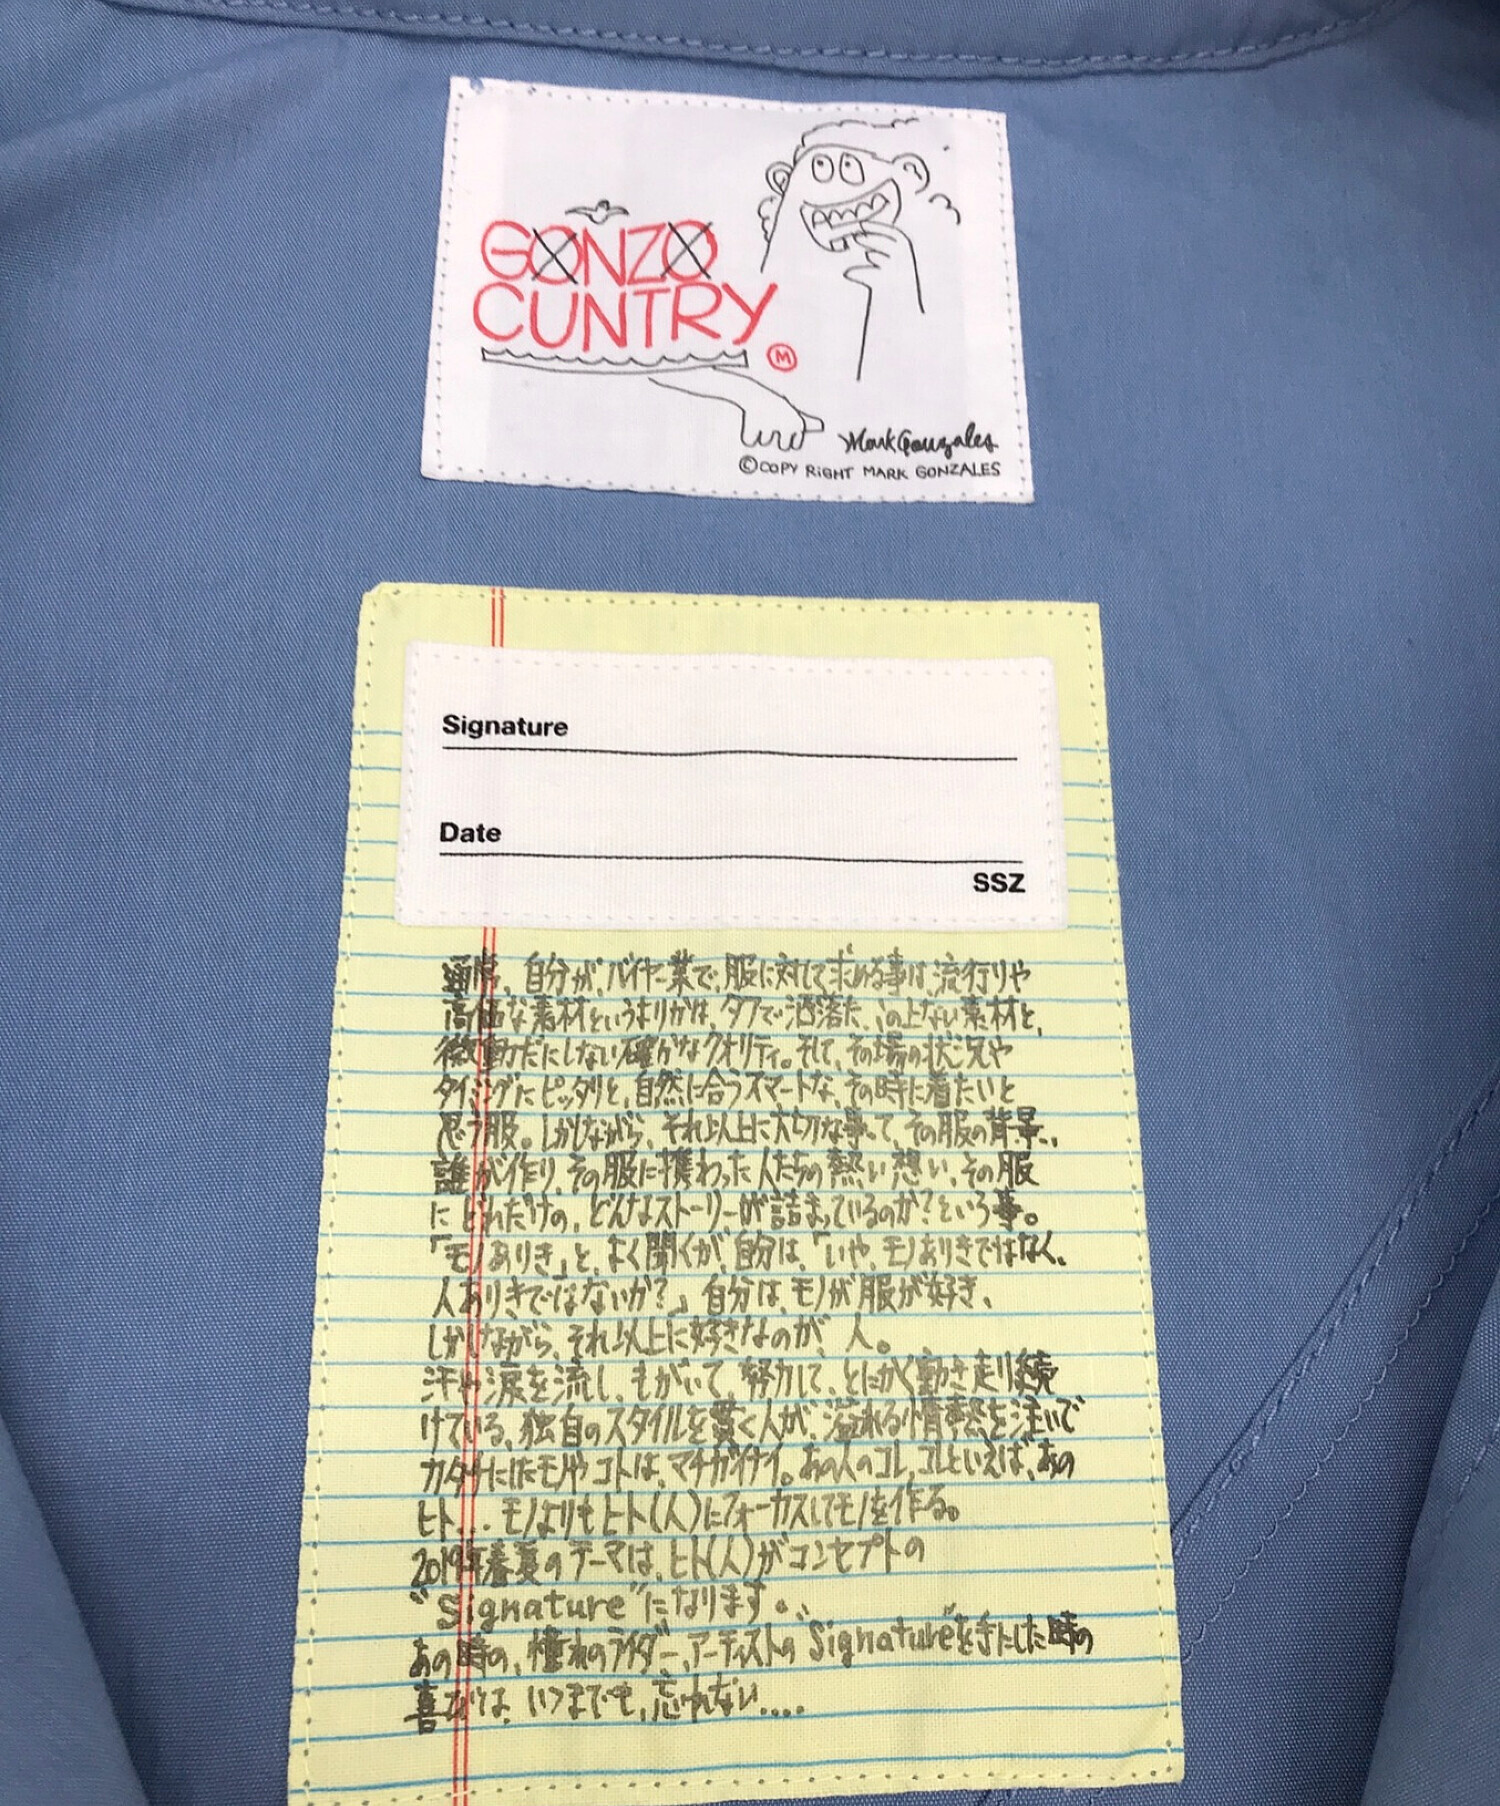 GONZO
CUNTRY
M
Mark Gonzales
©COPY RiGHT MARK GONZALES
Signature
Date
SSZ
通常、自分が、バイヤー業で、服に対して求める事は、流行りや
高価な素材というよりかは、タフで洒落た、この上ない素材と、
微動だにしない確かなクオリティ。そして、その場の状況や
タイミングにピッタリと、自然に合うスマートな、その時に着たいと
思う服。しかしながら、それ以上に大切な事って、その服の背景、
誰が作り、その服に携わった人たちの熱い想い、その服
にどれだけの、どんなストーリーが詰まっているのか?という事。
「モノありき」と、よく聞くが、自分は、「いや、モノありきではなく、
人ありきではないか?」自分は、モノが服が好き、
しかしながら、それ以上に好きなのが、人。
汗や涙を流し、もがいて、努力して、とにかく動き走り続
けている、独自のスタイルを貫く人が、溢れる情熱を注いで
カタチにしたモノやコトは、マチガイナイ。あの人のコレ、コレといえば、あの
ヒト... モノよりもヒト(人)にフォーカスしてモノを作る。
2019年春夏のテーマは、ヒト(人)がコンセプトの
"Signature"になります。、
あの時の、憧れのライダー、アーティストの"Signature"を手にした時の
喜びは、いつまでも、忘れない....